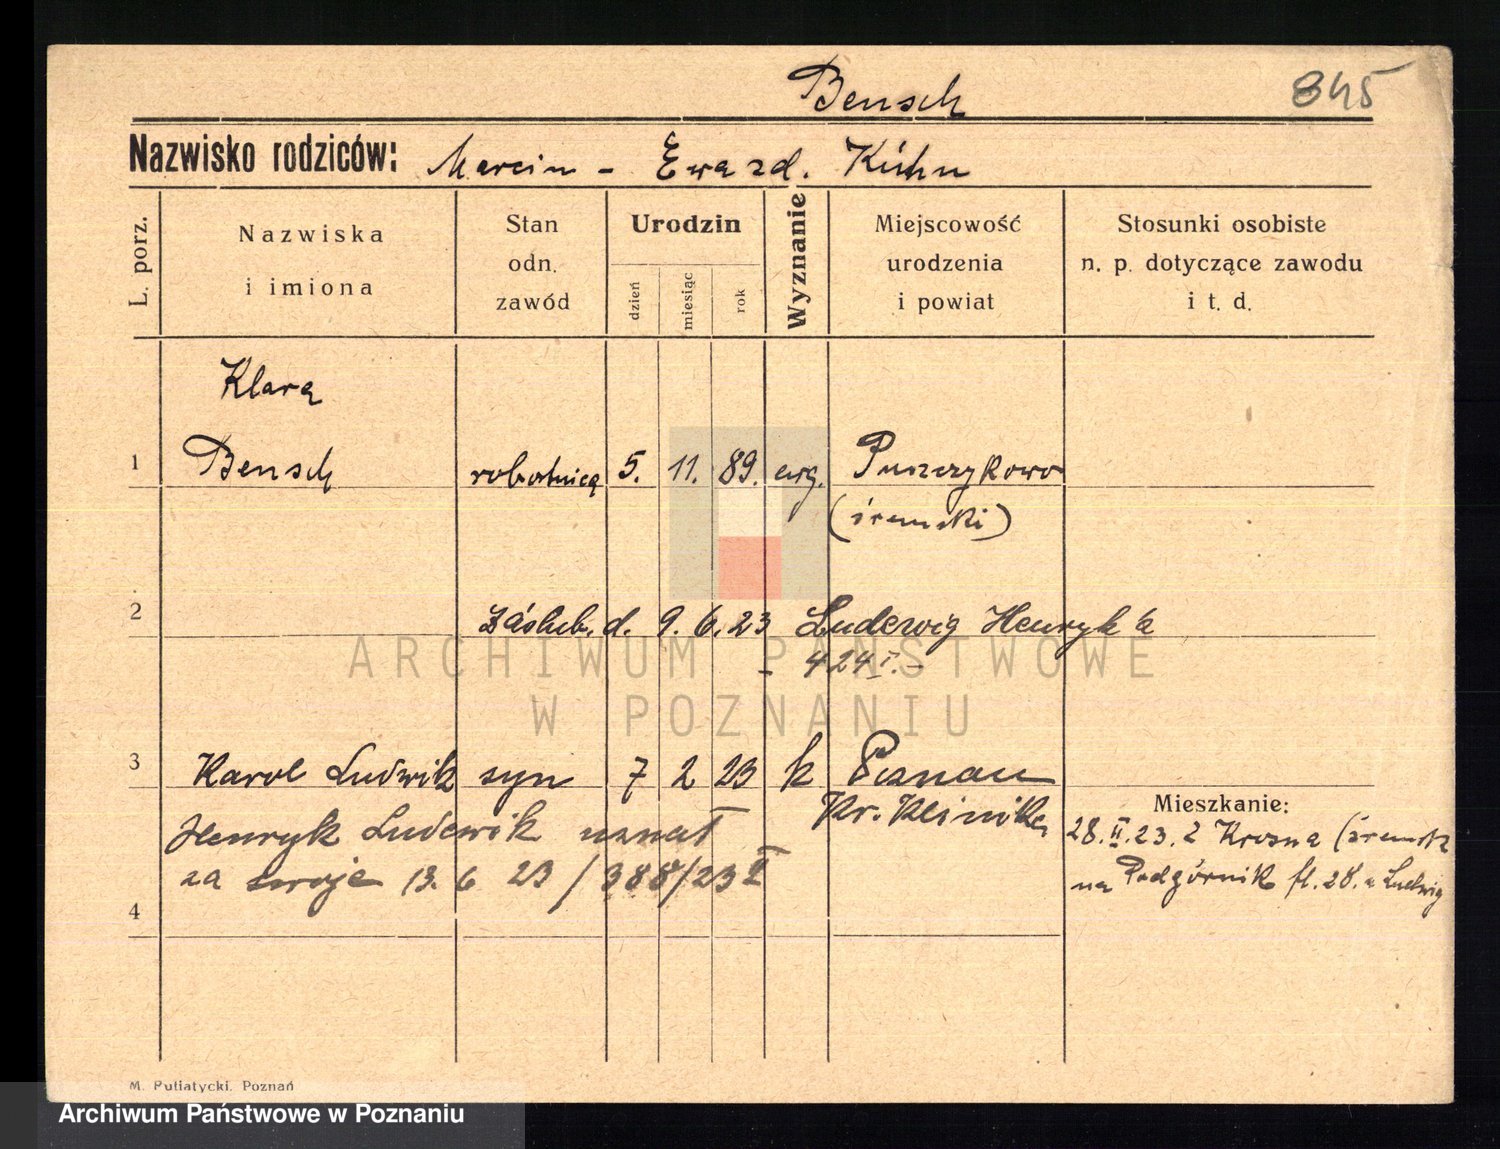 Bensch
845
Nazwisko rodziców: Marcin - Ewa zd. Kühn
L. porz.
Nazwiska i imiona
Stan odn. zawód
Urodzin
dzień
miesiąc
rok
Wyznanie
Miejscowość urodzenia i powiat
Stosunki osobiste n. p. dotyczące zawodu i t. d.
Klara
1 Bensch robotnica 5. 11. 89. ewg. Puszczykowo
(śremski)
2 Zaślub. d. 9. 6. 23 Ludewig Henryk'a
- 424 I. -
3 Karol Ludwik syn 7 2 23 k Poznań
Kr. Klinika
Henryk Ludewik uznał
za swoje 13. 6 23 / 388/23 II
4
Mieszkanie:
28. II. 23. z Krosna (śremsk
na Podgórnik fl. 28. u Ludwig
M. Putiatycki. Poznań
ARCHIWUM PAŃSTWOWE
W POZNANIU
Archiwum Państwowe w Poznaniu